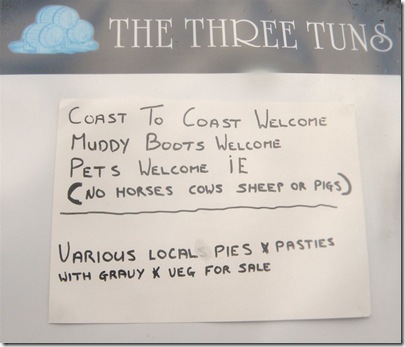 THE THREE TUNS
COAST TO COAST WELCOME
MUDDY BOOTS WELCOME
PETS WELCOME IE
(NO HORSES COWS SHEEP OR PIGS)
VARIOUS LOCAL PIES & PASTIES
WITH GRAVY & VEG FOR SALE